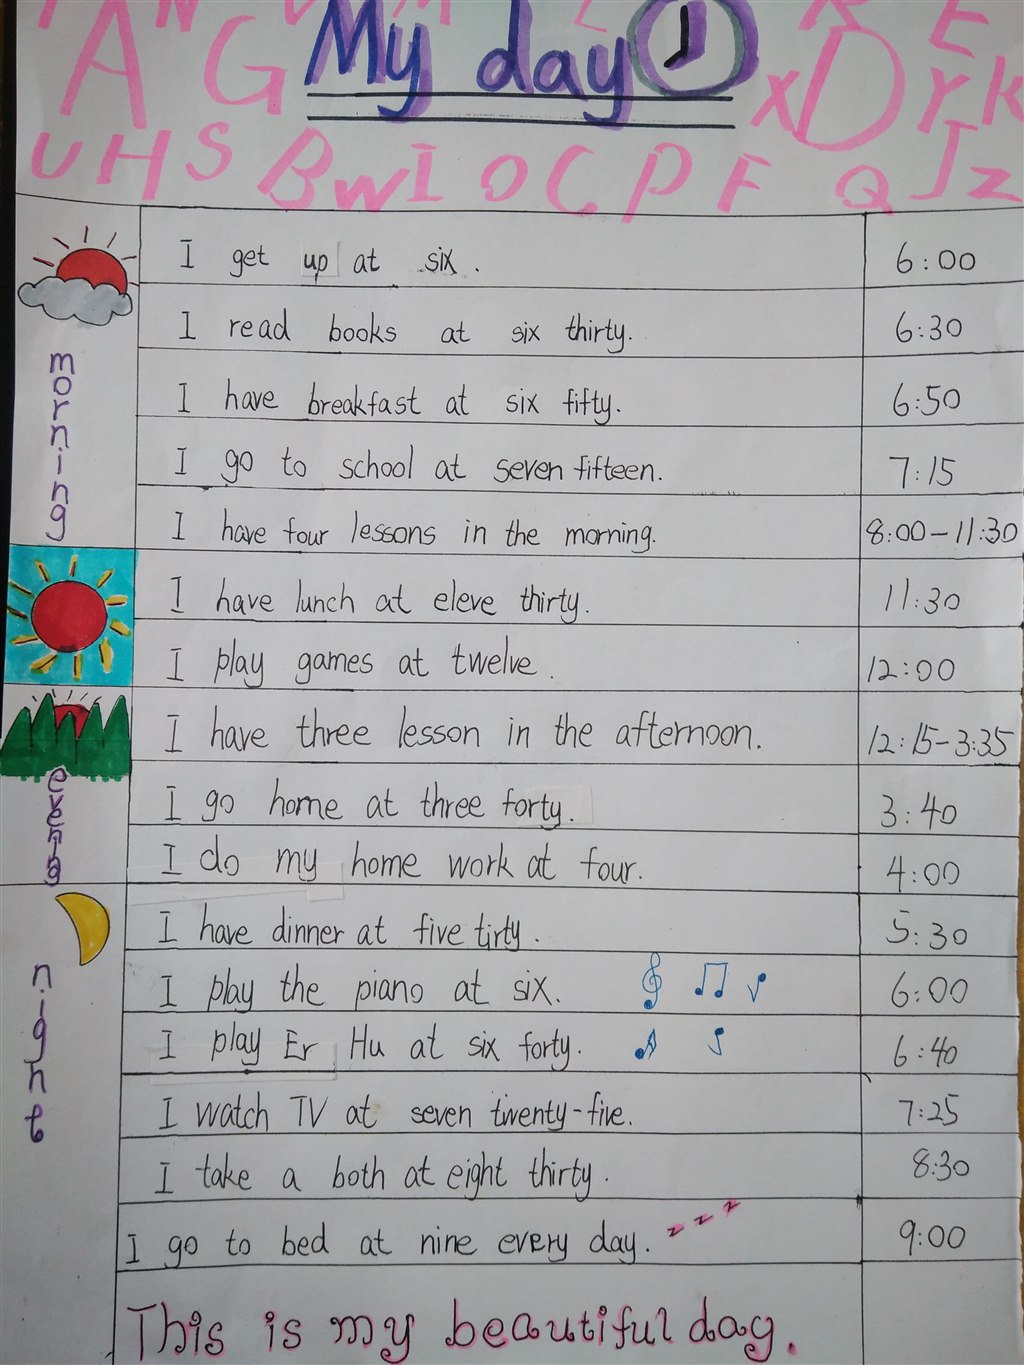 A N G V M L R E
My day
X D Y K
U H S B W I O C P F Q J Z
morning
I get up at six. 6:00
I read books at six thirty. 6:30
I have breakfast at six fifty. 6:50
I go to school at seven fifteen. 7:15
I have four lessons in the morning. 8:00-11:30
I have lunch at eleve thirty. 11:30
I play games at twelve. 12:00
I have three lesson in the afternoon. 12:15-3:35
I go home at three forty. 3:40
I do my home work at four. 4:00
night
I have dinner at five tirty. 5:30
I play the piano at six. 6:00
I play Er Hu at six forty. 6:40
I watch TV at seven twenty-five. 7:25
I take a both at eight thirty. 8:30
I go to bed at nine every day. zzz 9:00
This is my beautiful day.